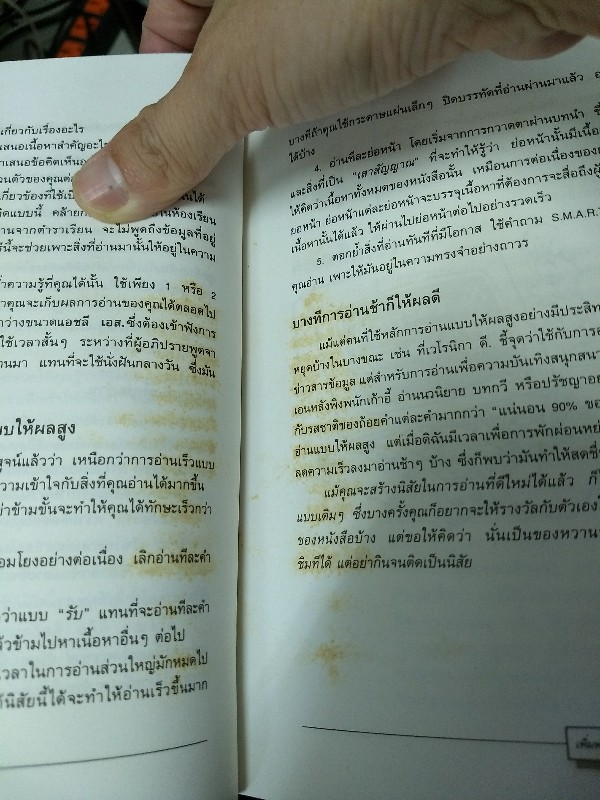 เกี่ยวกับเรื่องอะไร
เสนอเนื้อหาสำคัญอะไร
นำเสนอข้อคิดเห็น
เกี่ยวข้องที่ใช้
คิดแบบนี้ คล้าย ในห้องเรียน
จากตำราเรียน จะไม่พูดถึงข้อมูลที่อยู่
นี้จะช่วยเพาะสิ่งที่อ่านมานั้นให้อยู่ในความ
ความรู้ที่คุณได้นั้น ใช้เพียง 1 หรือ 2
คุณจะเก็บผลการอ่านของคุณได้ตลอดไป
ว่างขนาดแอชลี เอส.ซึ่งต้องเข้าฟังการ
ใช้เวลาสั้นๆ ระหว่างที่ผู้อภิปรายพูดจา
มา แทนที่จะใช้นั่งฝันกลางวัน ซึ่งมัน
แบบให้ผลสูง
สูจน์แล้วว่า เหนือกว่าการอ่านเร็วแบบ
ความเข้าใจกับสิ่งที่คุณอ่านได้มากขึ้น
ข้ามขั้นจะทำให้คุณได้ทักษะเร็วกว่า
อมโยงอย่างต่อเนื่อง เลิกอ่านทีละคำ
ว่าแบบ “รับ” แทนที่จะอ่านทีละคำ
ข้ามไปหาเนื้อหาอื่นๆ ต่อไป
เวลาในการอ่านส่วนใหญ่มักหมดไป
นิสัยนี้ได้จะทำให้อ่านเร็วขึ้นมาก
บางทีถ้าคุณใช้กระดาษแผ่นเล็กๆ ปิดบรรทัดที่อ่านผ่านมาแล้ว
ได้บ้าง
4. อ่านทีละย่อหน้า โดยเริ่มจากการกวาดตาผ่านบทนำ
และสิ่งที่เป็น “เสาสัญญาณ” ที่จะทำให้รู้ว่า ย่อหน้านั้นมีเนื้อ
ให้คิดว่าเนื้อหาทั้งหมดของหนังสือนั้น เหมือนการต่อเนื่องของ
ย่อหน้า ย่อหน้าแต่ละย่อหน้าจะบรรจุเนื้อหาที่ต้องการจะสื่อถึงผู้
เนื้อหานั้นได้แล้ว ให้ผ่านไปย่อหน้าต่อไปอย่างรวดเร็ว
5. ตอกย้ำสิ่งที่อ่านทันทีที่มีโอกาส ใช้คำถาม S.M.A.R.
คุณอ่าน เพาะให้มันอยู่ในความทรงจำอย่างถาวร
บางทีการอ่านช้าก็ให้ผลดี
แม้แต่คนที่ใช้หลักการอ่านแบบให้ผลสูงอย่างมีประสิท
หยุดบ้างในบางขณะ เช่น ที่เวโรนิกา ดี. ชี้จุดว่าใช้กับการ
ข่าวสารข้อมูล แต่สำหรับการอ่านเพื่อความบันเทิงสนุกสนา
เอนหลังพิงพนักเก้าอี้ อ่านนวนิยาย บทกวี หรือปรัชญา
กับรสชาติของถ้อยคำแต่ละคำมากกว่า “แน่นอน 90% ของ
อ่านแบบให้ผลสูง แต่เมื่อดิฉันมีเวลาเพื่อการพักผ่อน
ลดความเร็วลงมาอ่านช้าๆ บ้าง ซึ่งก็พบว่ามันทำให้สดชื่
แม้คุณจะสร้างนิสัยในการอ่านที่ดีใหม่ได้แล้ว ก็
แบบเดิมๆ ซึ่งบางครั้งคุณก็อยากจะให้รางวัลกับตัวเอง
ของหนังสือบ้าง แต่ขอให้คิดว่า นั่นเป็นของหวาน
ชิมทีได้ แต่อย่ากินจนติดเป็นนิสัย